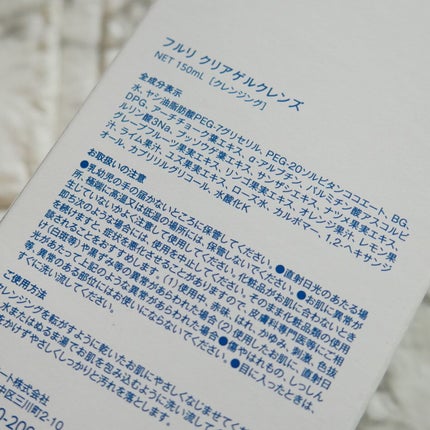 フルリ クリアゲルクレンズ
NET 150mL [クレンジング]
全成分表示
水、ヤシ油脂肪酸PEG-7グリセリル、PEG-20ソルビタンココエート、BG、
DPG、アーチチョーク葉エキス、α-アルブチン、パルミチン酸アスコルビ
ルリン酸3Na、ブッソウゲ葉エキス、サンザシエキス、ナツメ果実エキス、
グレープフルーツ果実エキス、リンゴ果実エキス、オレンジ果汁、レモン果
汁、ライム果汁、ユズ果実エキス、ローズ水、カルボマー、1,2-ヘキサンジ
オール、カプリリルグリコール、水酸化K
お取扱いの注意
●乳幼児の手の届かないところに保管してください。●直射日光のあたる場
所、極端に高温又は低温の場所には、保管しないでください。●お肌に異常が
生じていないかよく注意して使用してください。化粧品がお肌に合わないとき
即ち次のような場合には、使用を中止してください。そのまま化粧品類の使用
を続けますと、症状を悪化させることがありますので、皮膚科専門医等にご相
(1)使用中、赤味、はれ、かゆみ、刺激、色抜
け(白斑等)や黒ずみ等の異常があらわれた場合(2)使用したお肌に、直射日
光があたって上記のような異常があらわれた場合●傷やはれもの、しっしん
等、異常のある部位にはお使いにならないでください。●目に入ったときは、
すぐに洗い流してください。
ご使用方法